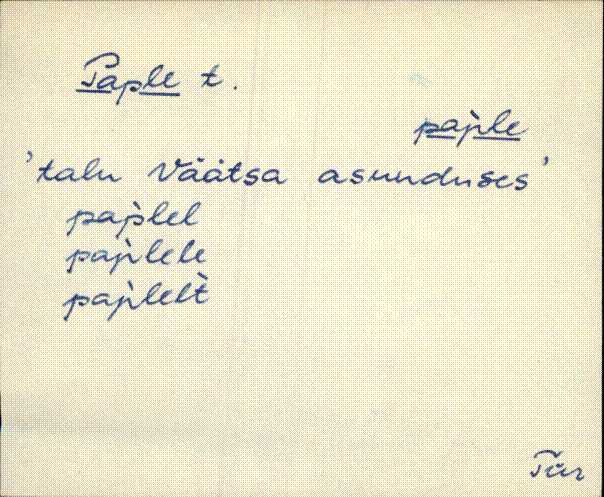 Paple t.
pap̀le
'talu Väätsa asunduses'
pap̀lel
pap̀lele
pap̀lelt̀
Tür